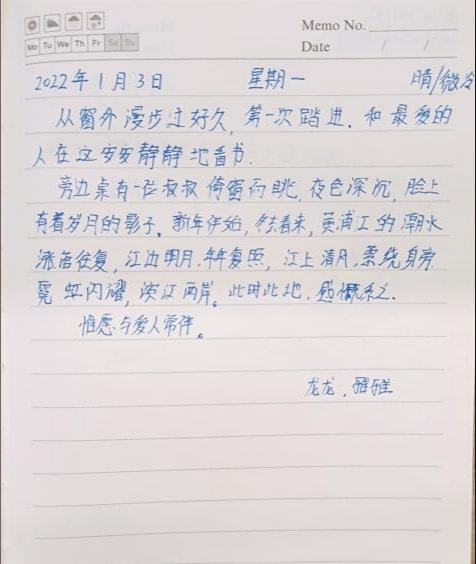 Memo No.
Mo Tu We Th Fr Sa Su
Date / /
2022年1月3日 星期一 晴/微冷
从窗外漫步过好久,第一次踏进.和最爱的
人在这安安静静地看书.
旁边桌有一位叔叔倚窗而眺,夜色深沉,脸上
有着岁月的影子。新年伊始,冬去春来,黄浦江的潮水
涨落往复,江边明月.年年复照,江上清风,萦绕身旁
霓虹闪耀,滨江两岸。此时此地,感慨系之.
惟愿与爱人常伴。
龙龙,雅雅